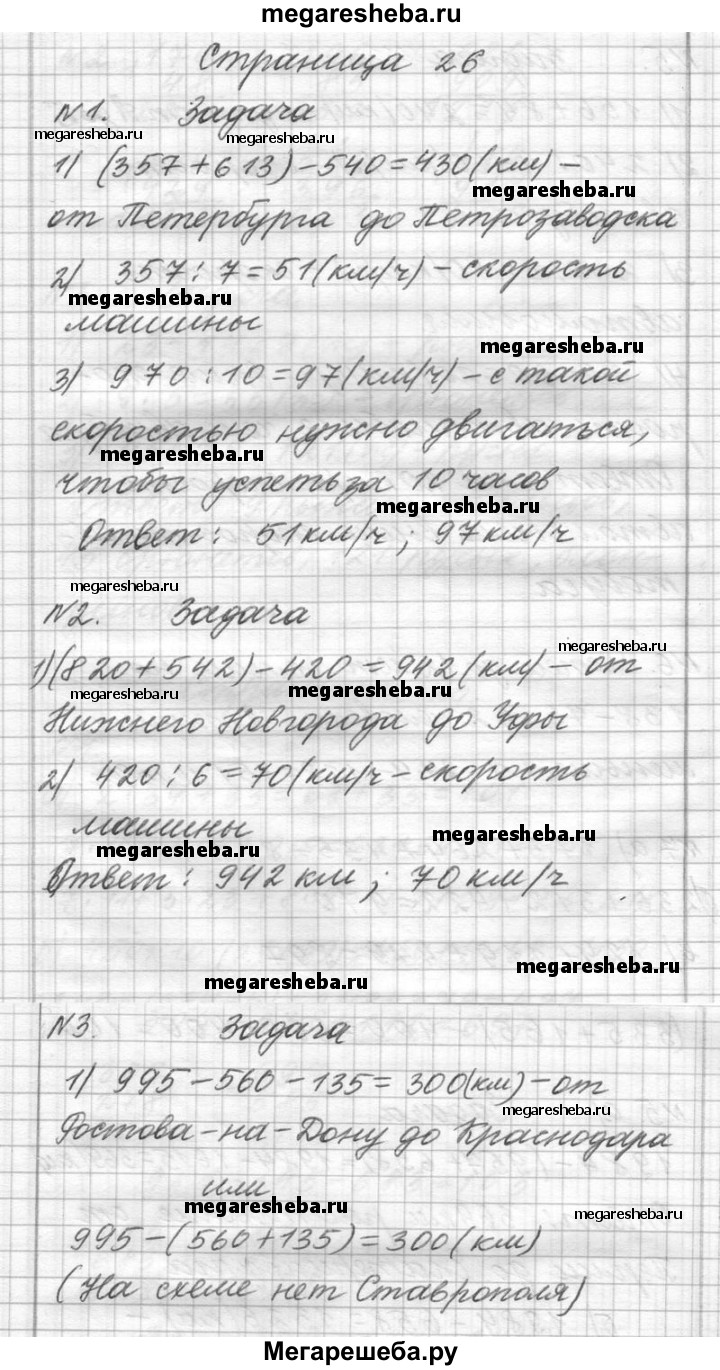 megaresheba.ru
Страница 26
№1. Задача
megaresheba.ru
megaresheba.ru
1) (357+613)-540=430(км) –
megaresheba.ru
от Петербурга до Петрозаводска
2) 357:7=51(км/ч) – скорость
megaresheba.ru
машины
megaresheba.ru
3) 970:10=97(км/ч) – с такой
скоростью нужно двигаться,
megaresheba.ru
чтобы успеть за 10 часов
megaresheba.ru
Ответ: 51 км/ч; 97 км/ч
megaresheba.ru
№2. Задача
megaresheba.ru
1)(820+542)-420=942(км) – от
megaresheba.ru
megaresheba.ru
Нижнего Новгорода до Уфы
2) 420:6=70(км/ч – скорость
машины
megaresheba.ru
megaresheba.ru
Ответ: 942 км; 70 км/ч
megaresheba.ru
megaresheba.ru
№3. Задача
1) 995-560-135=300(км) – от
megaresheba.ru
Ростова-на-Дону до Краснодара
или
megaresheba.ru
megaresheba.ru
995-(560+135)=300(км)
(На схеме нет Ставрополя)
Мегарешеба.ру